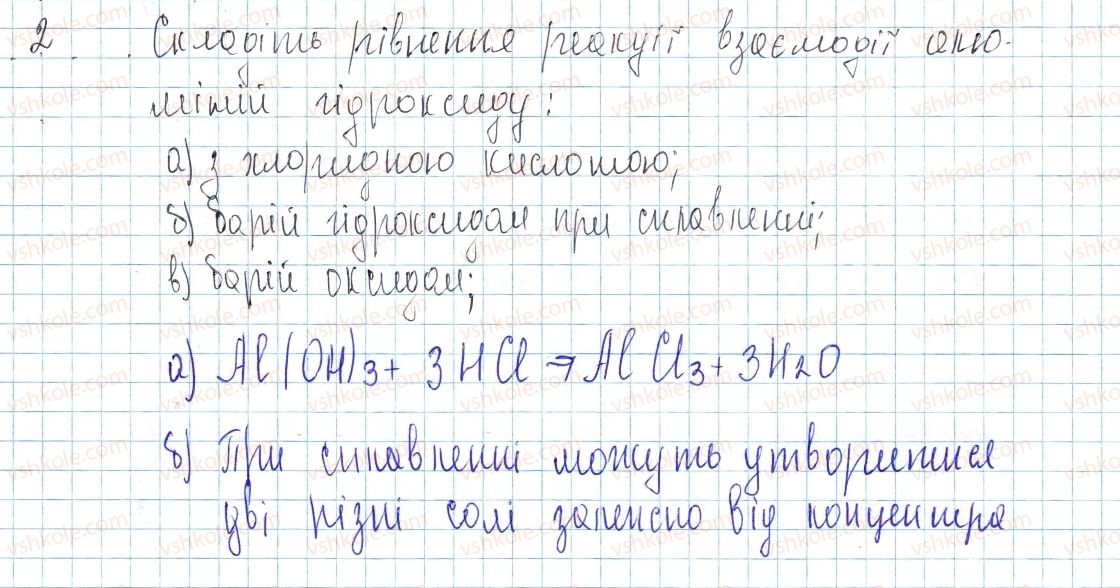 2 Складіть рівнення реакції взаємодії алю-
міній гідроксиду:
а) з хлоридною кислотою;
б) барій гідроксидом при сплавленні;
в) барій оксидом;
а) Al(OH)3 + 3HCl → AlCl3 + 3H2O
б) При сплавленні можуть утворитися
дві різні солі залежно від концентра